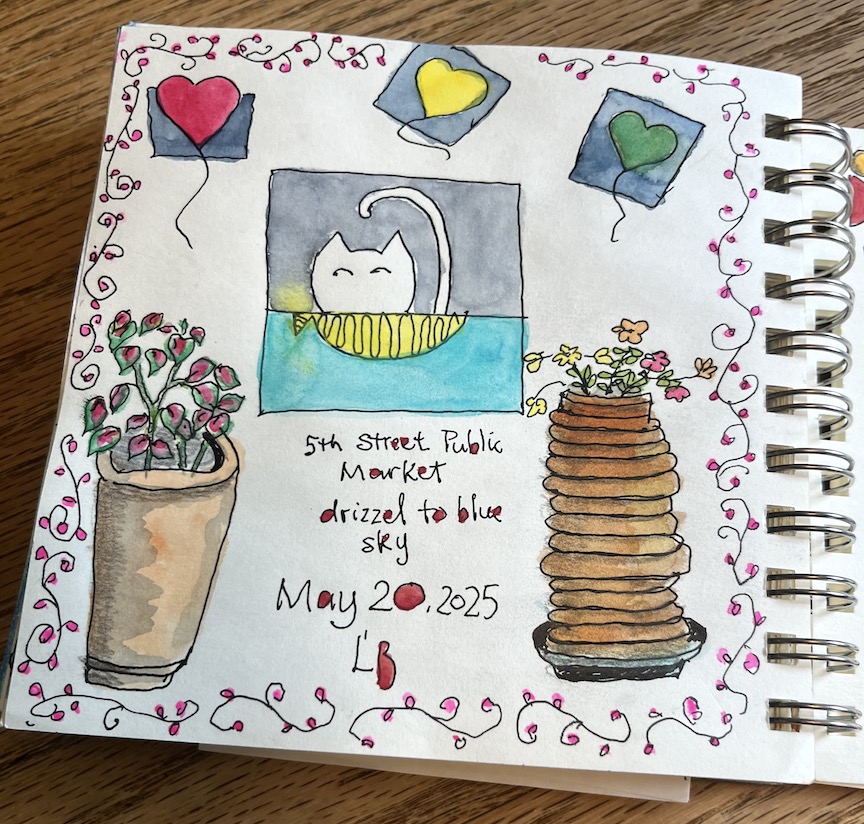 5th Street Public
Market
drizzel to blue
sky
May 20, 2025
LB